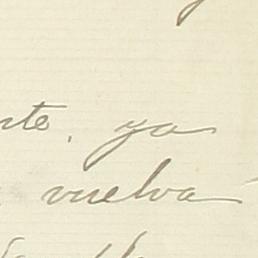 nte, ya
vuelva